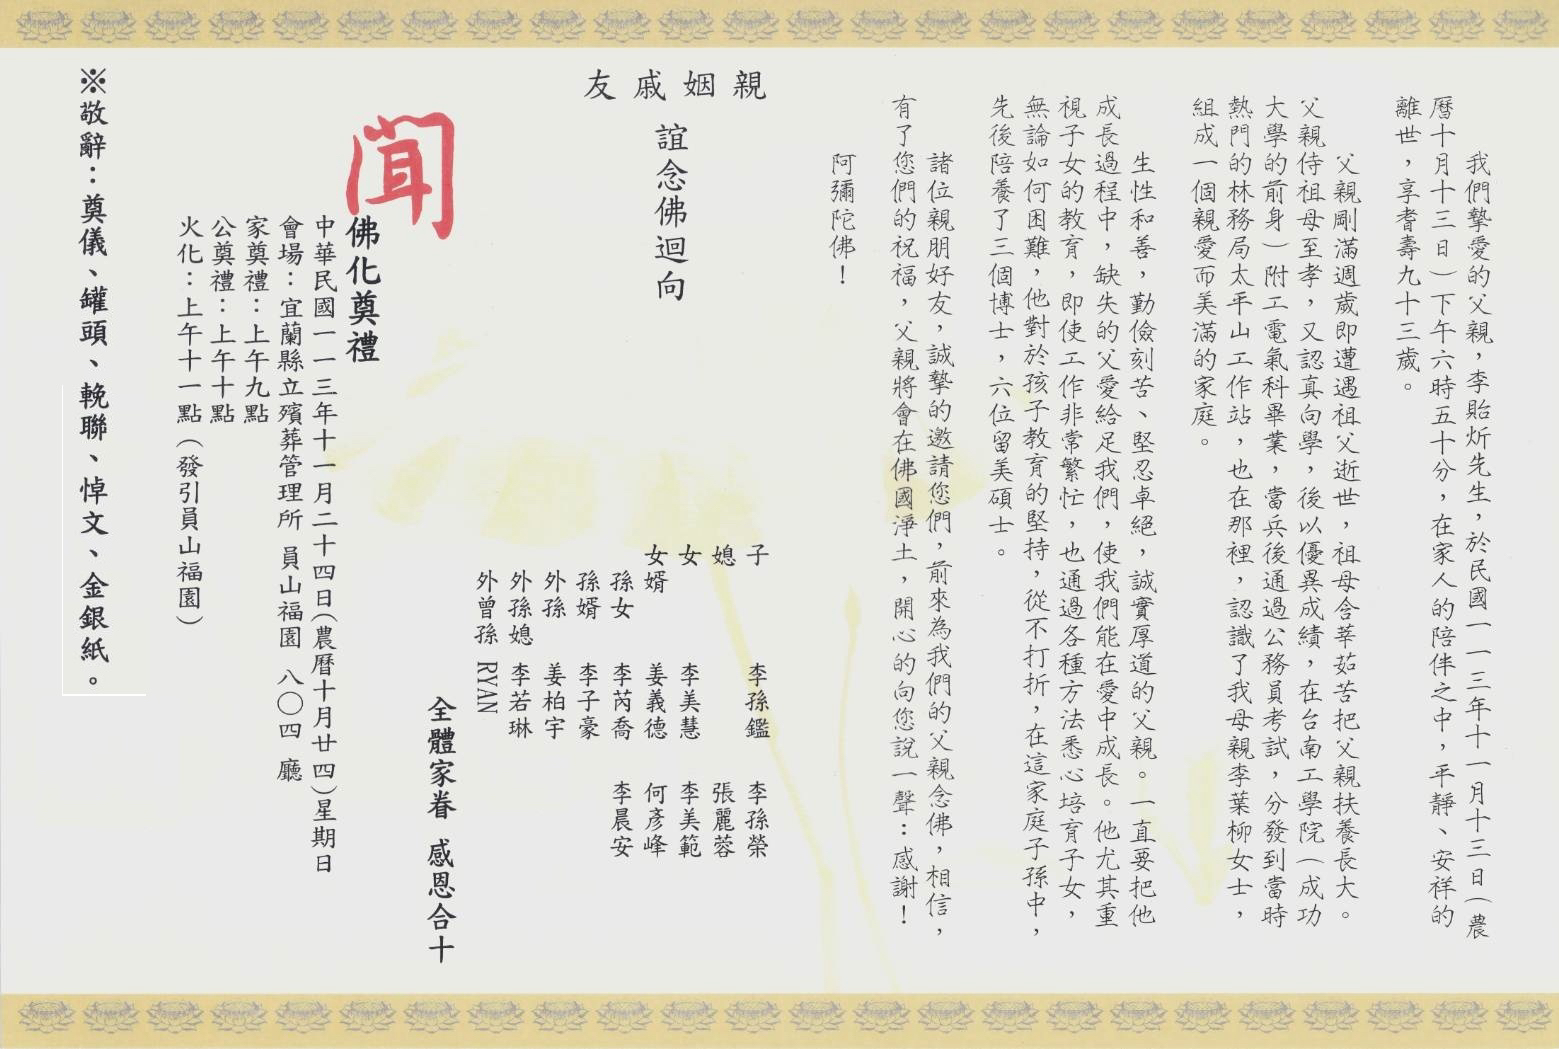 我們摯愛的父親，李貽炘先生，於民國一一三年十一月十三日(農
曆十月十三日)下午六時五十分，在家人的陪伴之中，平靜、安祥的
離世，享耆壽九十三歲。
父親剛滿週歲即遭遇祖父逝世，祖母含莘茹苦把父親扶養長大。
父親侍祖母至孝，又認真向學，後以優異成績，在台南工學院(成功
大學的前身)附工電氣科畢業，當兵後通過公務員考試，分發到當時
熱門的林務局太平山工作站，也在那裡，認識了我母親李葉柳女士，
組成一個親愛而美滿的家庭。
生性和善，勤儉刻苦、堅忍卓絕，誠實厚道的父親。一直要把他
成長過程中，缺失的父愛給足我們，使我們能在愛中成長。他尤其重
視子女的教育，即使工作非常繁忙，也通過各種方法悉心培育子女，
無論如何困難，他對於孩子教育的堅持，從不打折，在這家庭子孫中，
先後陪養了三個博士，六位留美碩士。
諸位親朋好友，誠摯的邀請您們，前來為我們的父親念佛，相信，
有了您們的祝福，父親將會在佛國淨土，開心的向您說一聲：感謝！
阿彌陀佛！
親姻戚友
誼念佛迴向
子 李孫鑑 李孫榮
媳 張麗蓉
女 李美慧 李美範
女婿 姜義德 何彥峰
孫女 李芮喬 李晨安
孫婿 李子豪
外孫 姜柏宇
外孫媳 李若琳
外曾孫 RYAN
全體家眷 感恩合十
聞
佛化奠禮
中華民國一一三年十一月二十四日(農曆十月廿四)星期日
會場：宜蘭縣立殯葬管理所 員山福園 八〇四 廳
家奠禮：上午九點
公奠禮：上午十點
火化：上午十一點(發引員山福園)
※敬辭：奠儀、罐頭、輓聯、悼文、金銀紙。